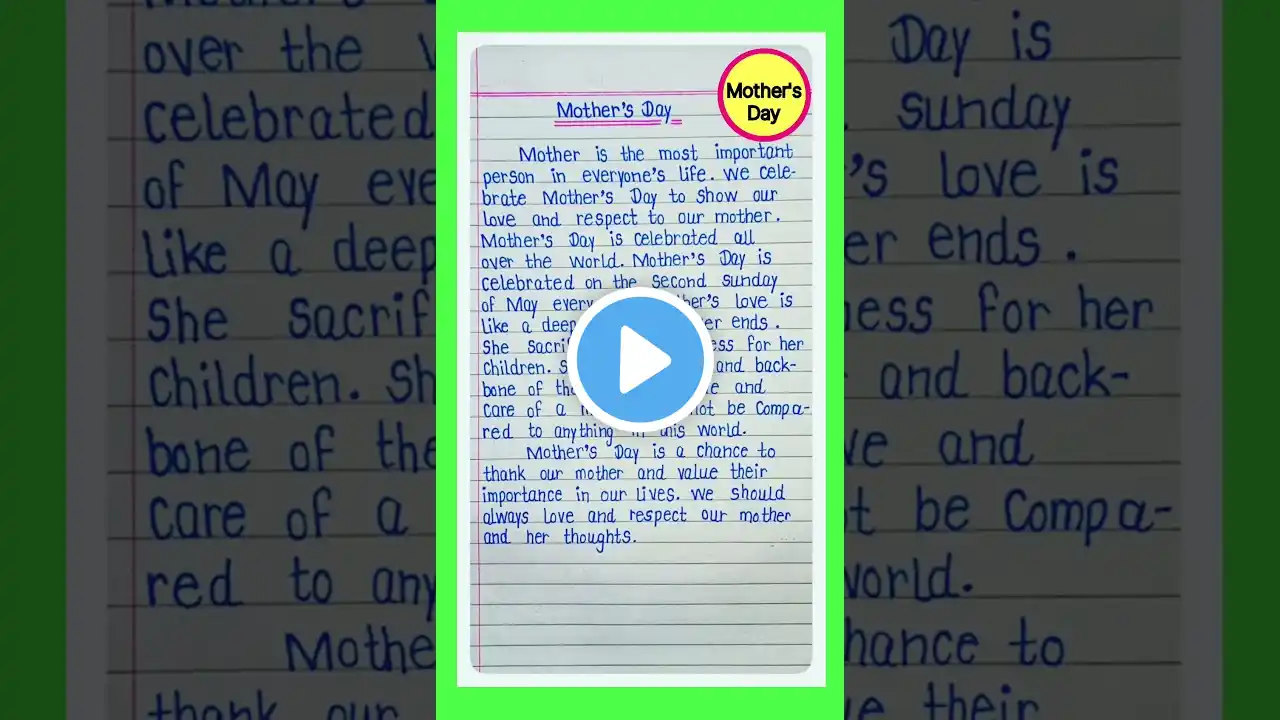 Mother's
Day
Mother's Day
Mother is the most important
person in everyone's life. We cele-
brate Mother's Day to show our
love and respect to our mother.
Mother's Day is celebrated all
over the world. Mother's Day is
celebrated on the second sunday
of May every love is
like a deep ends.
She for her
children. and back-
bone of the and
care of a not be compa-
red to anything in this world.
Mother's Day is a chance to
thank our mother and value their
importance in our lives. We should
always love and respect our mother
and her thoughts.